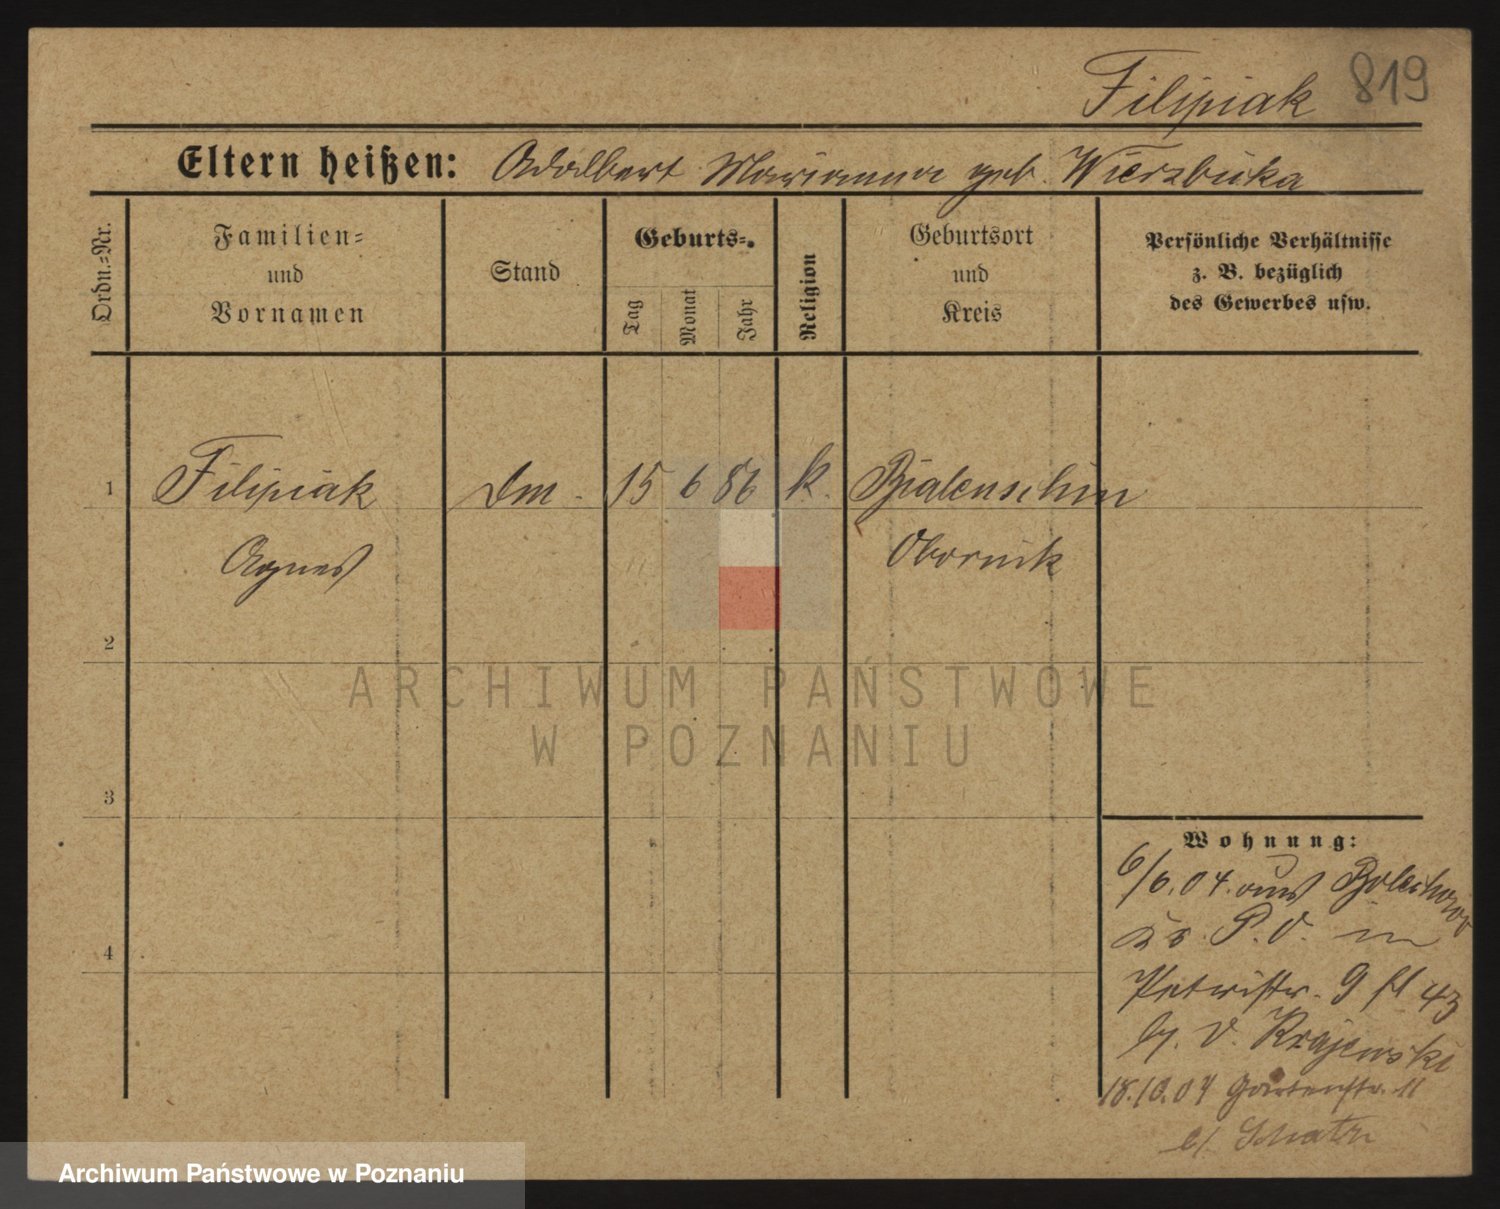 Filipiak 819
Eltern heißen: Adalbert Marianna geb. Wierzbicka
Ordn.-Nr.
Familien-
und
Vornamen
Stand
Geburts-
Tag
Monat
Jahr
Religion
Geburtsort
und
Kreis
Persönliche Verhältnisse
z. B. bezüglich
des Gewerbes usw.
1 Filipiak Dm. 15 6 86 k. Bialenschin
Agnes Obornik
2
3
4
Wohnung:
6/6.04. aus Bolechowo
Kr. P.O. in
Petristr. 9 43
b/. v. Krajewski
18.10.04 Gartenstr. 11
b/.
ARCHIWUM PAŃSTWOWE
W POZNANIU
Archiwum Państwowe w Poznaniu